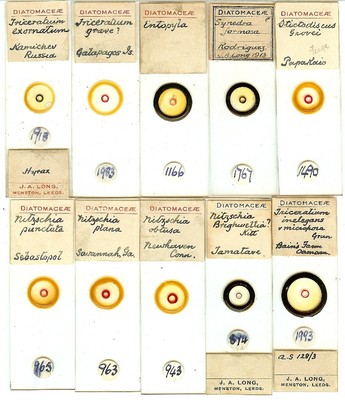 DIATOMACEÆ
Triceratium
exornatum
Kamischev
Russia
1913
Hyrax
J. A. LONG,
MENSTON, LEEDS.
DIATOMACEÆ
Triceratium
grave?
Galapagos Is.
1983
DIATOMACEÆ
Entopyla
1166
DIATOMACEÆ
Synedra
formosa
Rodriguez
1767
DIATOMACEÆ
Stictodiscus
Grovei
Papakaio
1490
DIATOMACEÆ
Nitzschia
punctata
Sebastopol
965
DIATOMACEÆ
Nitzschia
plana
Savannah, Ga.
963
DIATOMACEÆ
Nitzschia
obtusa
Newhaven
Conn.
943
DIATOMACEÆ
Nitzschia
Brightwellii?
Kitt
Tamatave
894
J. A. LONG,
MENSTON, LEEDS.
DIATOMACEÆ
Triceratium
inelegans
v micropora
Grun
Bain's Farm
Oamaru
1993
a.s 128/3
J. A. LONG,
MENSTON, LEEDS.